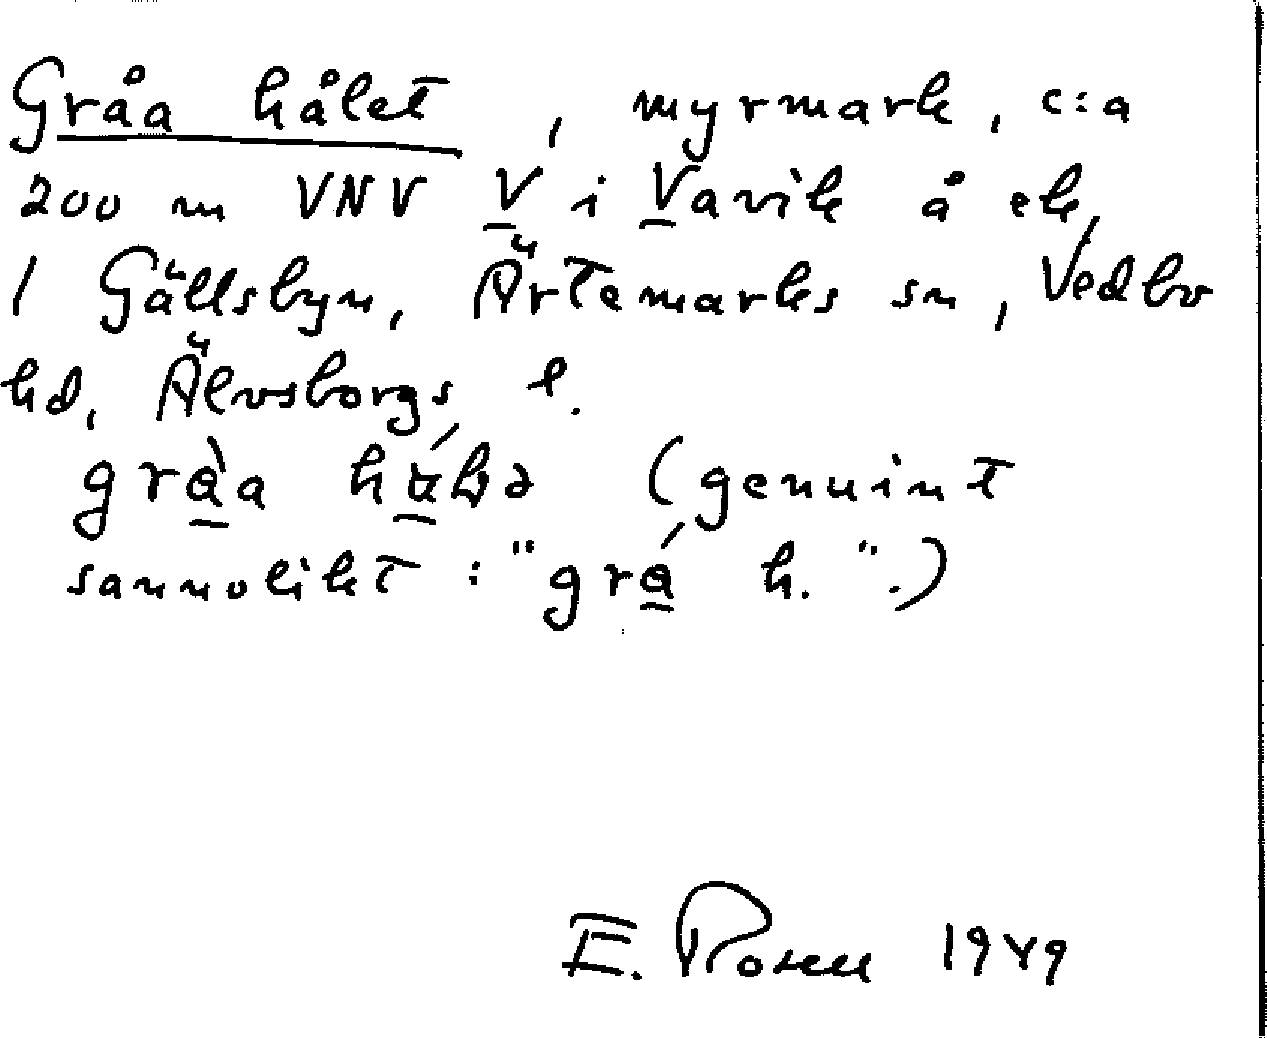 Gråa hålet, myrmark, c:a
200 m VNV V i Varik å ek,
1 Gällsbyn, Ärtemarks sn, Vedbo
hd, Älvsborgs l.
gràa (genuint
sannolikt: "grá h.".)
E. Rosell 1949